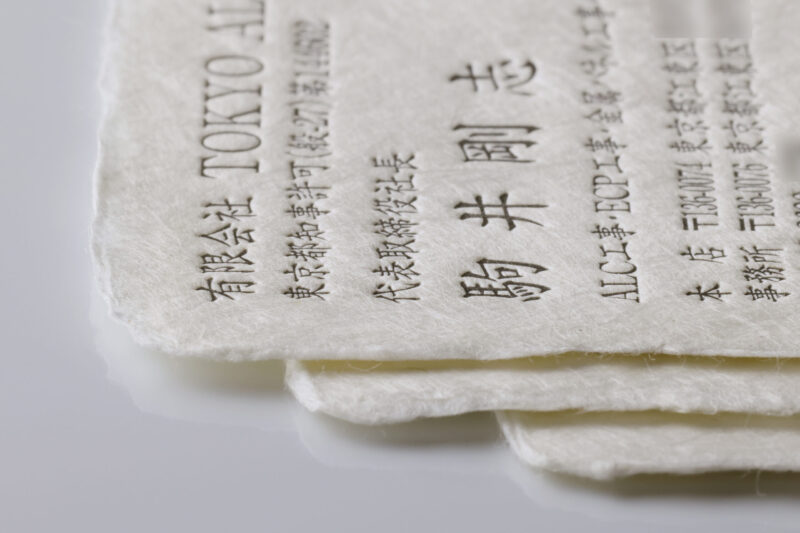 有限会社 TOKYO AL
東京都知事許可(般-27)第144632
代表取締役社長
駒井剛志
ALC工事・ECP工事・金属パネル工事・
本 店 〒136-0074 東京都江東区
事務所 〒136-0075 東京都江東区